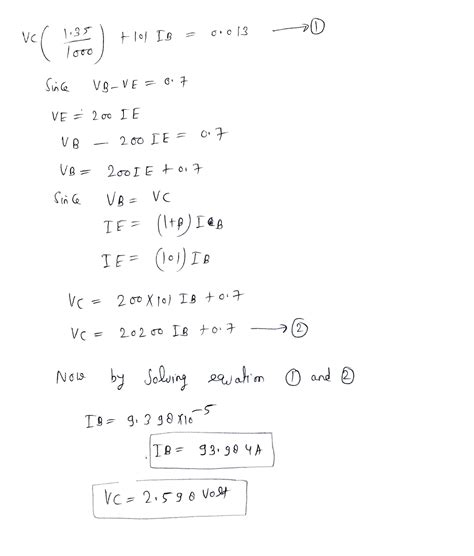 VC ( 1.35 / 1000 ) + 101 IB = 0.013 → ①
Since VB - VE = 0.7
VE = 200 IE
VB - 200 IE = 0.7
VB = 200 IE + 0.7
Since VB = VC
IE = (1+β) IB
IE = (101) IB
VC = 200 × 101 IB + 0.7
VC = 20200 IB + 0.7 → ②
Now by Solving equation ① and ②
IB = 9.398 × 10^-5
IB = 93.98 μA
VC = 2.598 Volt